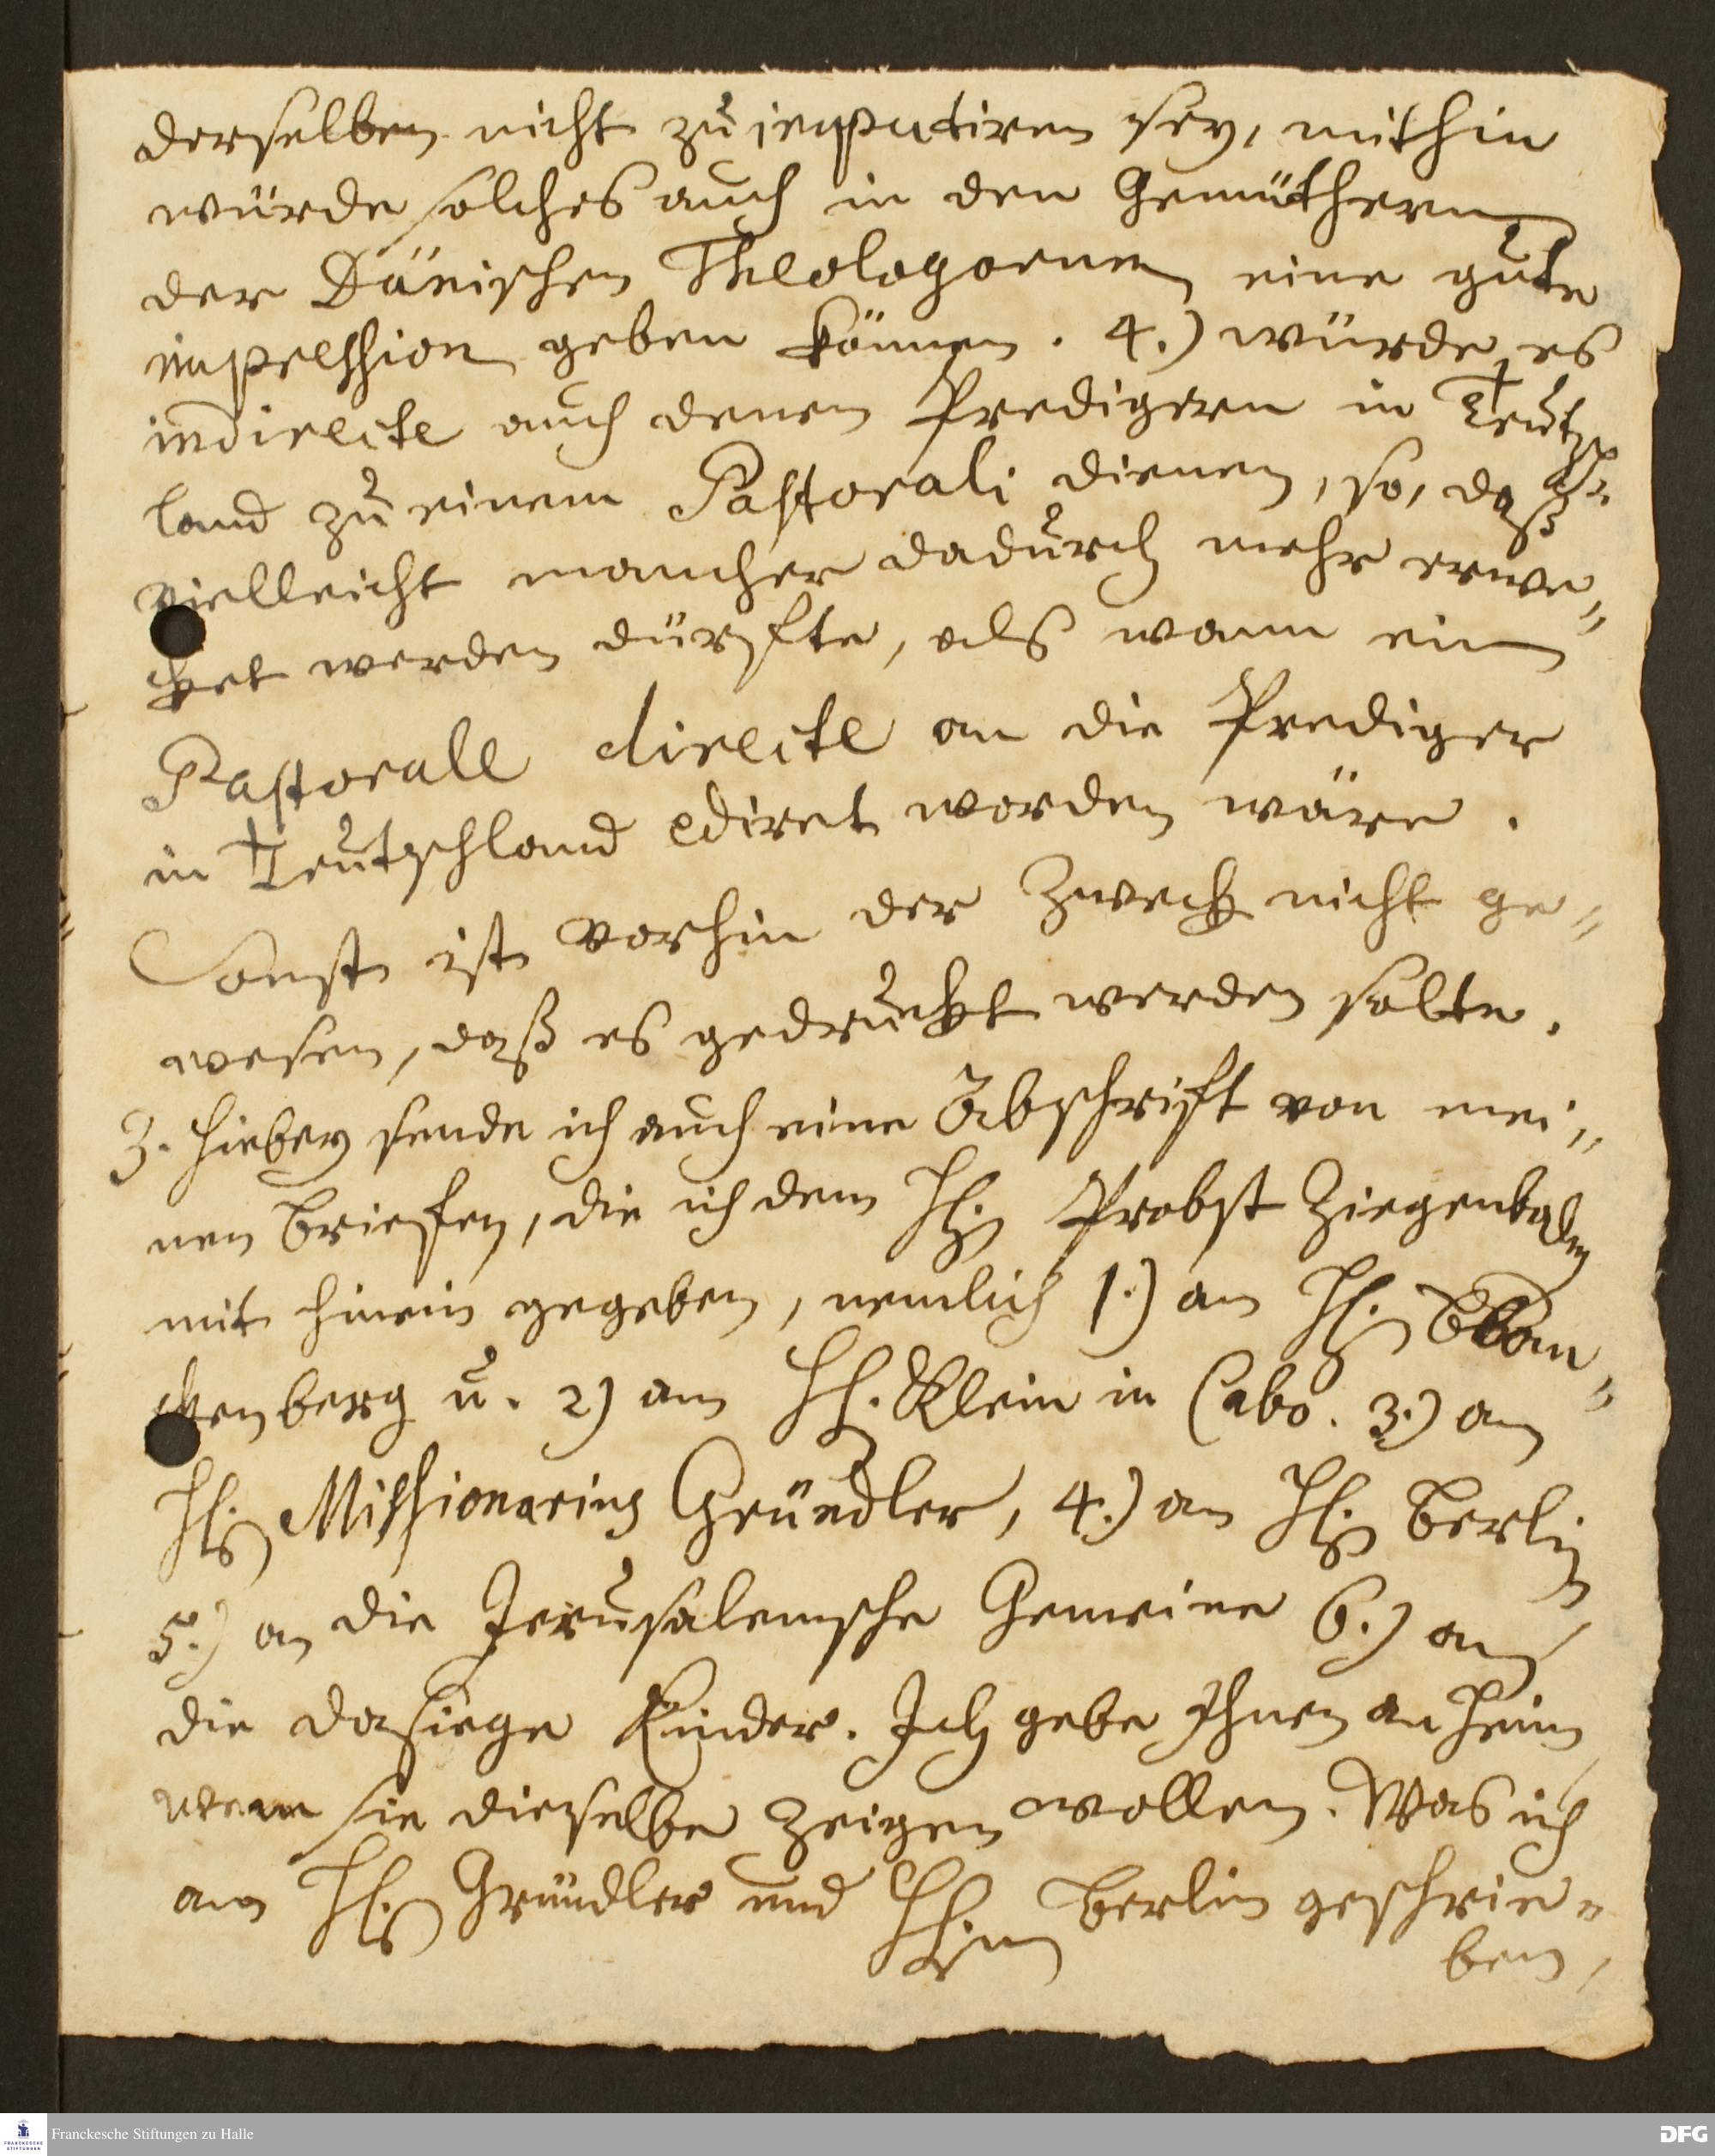 derselben nicht zu imputiren sey, mithin
würde solches auch in den Gemüthern
der Dänischen Theologorum eine gute
impression geben können. 4.) würde es
indirecte auch denen Predigern in Teutsch-
land zu einem Pastorali dienen, so, daß
vielleicht mancher dadurch mehr erwe„
cket werden dürffte, als wann ein
Pastorale directe an die Prediger
in Teutschland ediret worden wäre.
Sonst ist vorhin der Zweck nicht ge„
wesen, daß es gedruckt werden solte.
3. Hiebey sende ich auch eine Abschrifft von mei„
nen Briefen, die ich dem H. Probst Ziegenbalg
mit hinein gegeben, nemlich 1.) an H. Blan„
ckenberg u. 2) an H. Klein in Cabo. 3.) an
H. Missionarius Gründler, 4.) an H. Berlin
5.) an die Jerusalemsche Gemeine 6.) an
die dasige Kinder. Ich gebe Ihnen anheim
wem sie dieselbe zeigen wollen. Was ich
an H. Gründler und H. Berlin geschrie„
ben,
Franckesche Stiftungen zu Halle
DFG